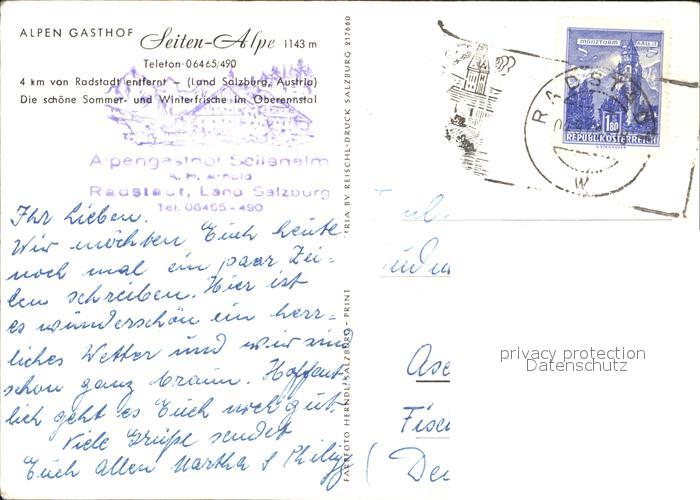 ALPEN GASTHOF Seiten-Alpe 1143 m
Telefon 06465/490
4 km von Radstadt entfernt – (Land Salzburg, Austria)
Die schöne Sommer- und Winterfrische im Oberennstal
Alpengasthof Seitenalm
A. H. Arnold
Radstadt, Land Salzburg
Tel. 06465-490
Ihr Lieben.
Wir möchten Euch heute
noch mal ein paar Zei-
len schreiben. Hier ist
es wunderschön ein herr-
liches Wetter und wir sind
schon ganz braun. Hoffent-
lich geht es Euch noch gut.
Viele Grüße sendet
Euch allen Martha &
FARBFOTO HERNDL/SALZBURG-PRINT
BY REISCHL-DRUCK SALZBURG 217660
MÜNZTURM
1.80
REPUBLIK ÖSTERREICH
RADSTADT
W
Ase
Fisc
(De
privacy protection
Datenschutz